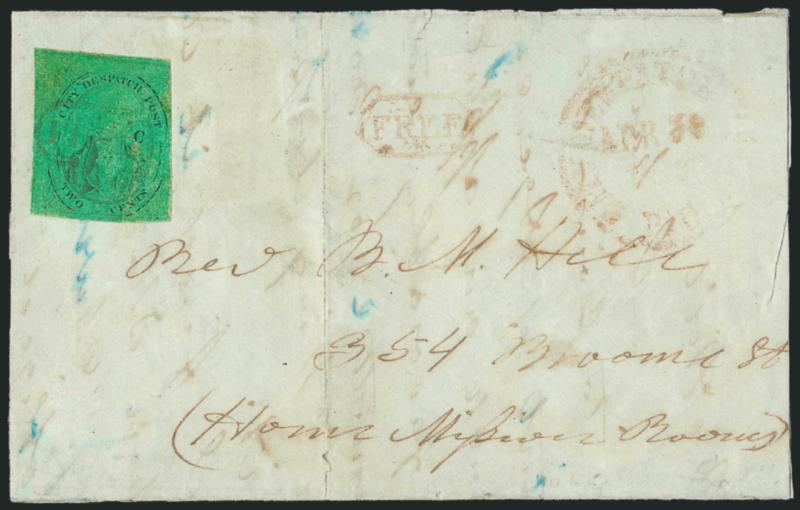 CITY DESPATCH POST
C
TWO CENTS
FREE
APR 30
Rev B. M. Hill
354 Broome St
(Home Mission Rooms)